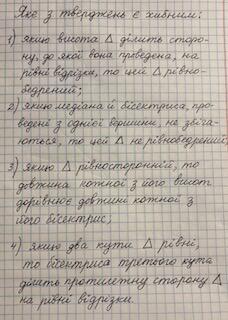 Яке з тверджень є хибним:
1) якщо висота Δ ділить сторо-
ну, до якої вона проведена, на
рівні відрізки, то цей Δ рівно-
бедрений;
2) якщо медіана й бісектриса, про-
ведені з однієї вершини, не збіга-
ються, то цей Δ не рівнобедрений;
3) якщо Δ рівносторонній, то
довжина кожної з його висот
дорівнює довжині кожної з
його бісектрис;
4) якщо два кути Δ рівні,
то бісектриса третього кута
ділить протилежну сторону Δ
на рівні відрізки.